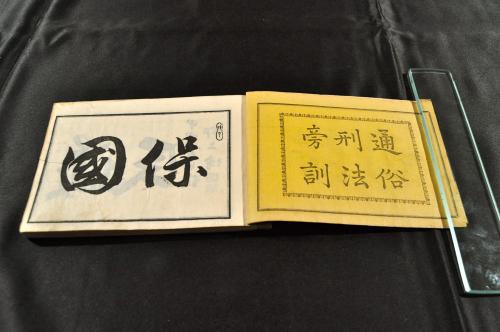 通俗
刑法
旁訓
保國